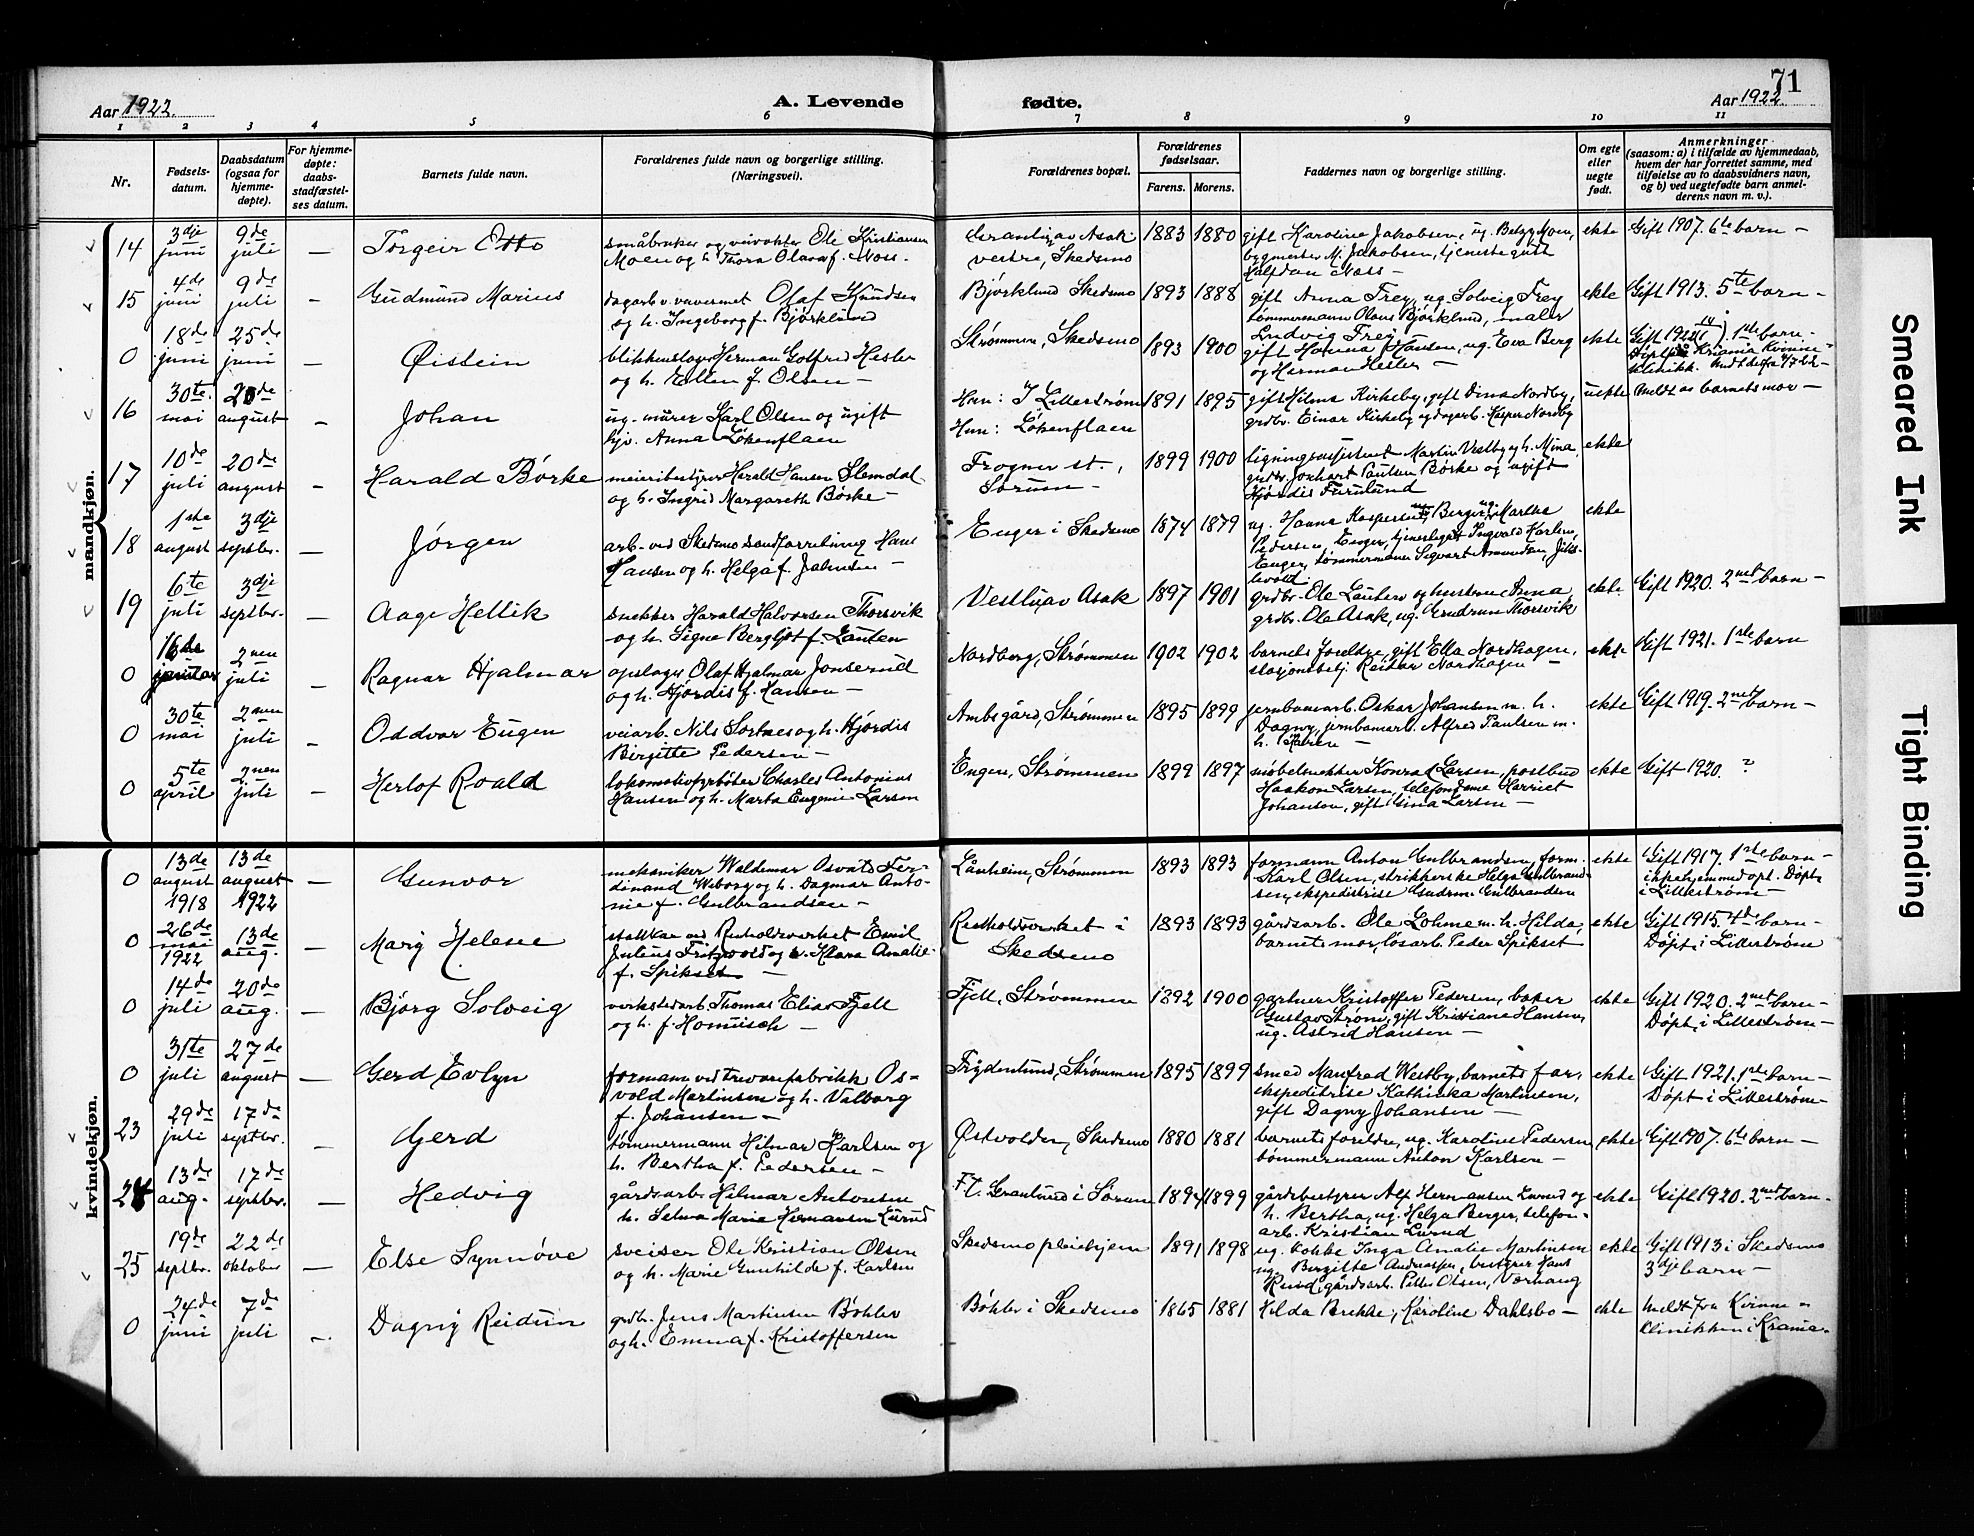 71
Aar 1922. A. Levende fødte. Aar 1922.
1 2 3 4 5 6 7 8 9 10 11
Nr. Fødsels-datum. Daabsdatum (ogsaa for hjemme-døpte). For hjemme-døpte: daabs-stadfæstel-ses datum. Barnets fulde navn. Forældrenes fulde navn og borgerlige stilling. (Næringsvei). Forældrenes bopæl. Forældrenes fødselsaar. Farens. Morens. Faddernes navn og borgerlige stilling. Om egte eller uegte født. Anmerkninger (saasom: a) i tilfælde av hjemmedaab, hvem der har forrettet samme, med tilføielse av to daabsvidners navn, og b) ved uegtefødte barn anmelderens navn m. v.).
mandkjøn.
14 3dje juni 9de juli — Torgeir Otto småbruker og veivokter Ole Kristiansen Moen og h. Thora Olava f. Moss. vestre, Skedsmo 1883 1880 gift Karoline Jakobsen, ug. Moen, bygmester M. Jakobsen, Halfdan Moss — ekte Gift 1907. 6te barn —
15 4de juni 9de juli — Gudmund Marius Olaf Knudsen og h. Ingeborg f. Bjørklund Bjørklund Skedsmo 1893 1888 gift Anna Frey, ug. Solveig Frey tømmermann Olaus Bjørklund, maler Ludvig Frey ekte Gift 1913. 5te barn —
0 18de juni 25de juni — Øistein blikkenslager Herman Golfred Hesler og h. Ellen f. Olsen — Strømmen, Skedsmo 1893 1900 gift Hanna Hansen, ug. Eva Berg og Herman Hesler — ekte 1ste barn.
16 30te mai 20de august — Johan ug. murer Karl Olsen og ugift Anna Løkenflaen Han: I Lillestrøm Hun: Løkenflaen 1891 1895 gift Hilma Kirkeby, gift Dina Nordby, grdbr. Einar Kirkeby og dagarb. Kasper Nordby uekte Meldt av barnets mor —
17 10de juli 20de august — Harald Børke meieribestyrer Harald Hansen Slemdal og h. Ingrid Margareth Børke — Frogner st., Sørum — 1899 1900 Martin Vestby og h. Mina, Paulsen Børke og ugift Hjørdis Furulund ekte
18 1ste august 3dje septbr. — Jørgen arb. ved Skedsmo Hans Hansen og h. Helga f. Jahnsen — Enger i Skedsmo 1874 1879 ug. Hanna Kaspersen, Berger, ug. Martha Pedersen, Enger, Ingvald Karlsen, Enger, tømmermann Sigvart Amundsen ekte
19 6te juli 3dje septbr. — Aage Hellik snekker Harald Halvorsen Thorsvik og h. Signe Bergljot f. Lauten Vestby av Asak 1897 1901 grdbr. Ole Lauten og hustru Anna, grdbr. Ole Asak, ug. Gudrun Thorsvik ekte Gift 1920. 2net barn —
0 16de januar 2nen juli — Ragnar Hjalmar Olaf Hjalmar Jonserud og h. Hjørdis f. Hansen — Nordberg, Strømmen 1902 1902 barnets foreldre, gift Ella Nordhagen, stasjonsbetj. Reidar Nordhagen — ekte Gift 1921. 1ste barn
0 30te mai 2nen juli — Oddvar Eugen veiarb. Nils Sortnes og h. Hjørdis Birgitte Pedersen — Ambsgård, Strømmen 1895 1899 jernbanearb. Oskar Johansen m. h. Dagny, jernbanearb. Alfred Paulsen m. h. Karen — ekte Gift 1919. 2net barn —
0 5te april 2nen juli — Herlof Roald lokomotivfyrbøter Charles Antonius Hansen og h. Marta Eugenie Larsen Engen, Strømmen 1899 1897 møbelsnekker Konrad Larsen, postbud Haakon Larsen, telefondame Harriet Johansen, gift Gina Larsen — ekte Gift 1920. ?
kvindekjøn.
0 13de august 1918 13de august 1922 — Gunvor mekaniker Waldemar Osvats Ferdinand Wiborg og h. Dagmar Antonie f. Gulbrandsen — Lånheim, Strømmen 1893 1893 formann Anton Gulbrandsen, form. Karl Olsen, strikkerske Helga Gulbrandsen, ekspeditrise Gudrun Gulbrandsen ekte Gift 1917. 1ste barn — ikke hjemmedøpt. Døpt i Lillestrøm —
0 26de mai 1922 13de aug. — Marig Helene stallkar ved Renholdsverket Emil Julius og h. Klara Amalie f. Spikset — Renholdsverket i Skedsmo 1893 1893 gårdsarb. Ole Lohme m. h. Hilda, barnets mor, løsarb. Peder Spikset ekte Gift 1915. 4de barn — Døpt i Lillestrøm
0 14de juli 20de aug. — Bjørg Solveig verkstedarb. Thomas Elias Fjell og h. f. Homuisch — Fjell, Strømmen 1892 1900 gartner Kristoffer Pedersen, baker Gustav Strøm, gift Kristiane Hansen, ug. Astrid Hansen — ekte Gift 1920. 2net barn — Døpt i Lillestrøm —
0 31te juli 27de august — Gerd Evlyn formann ved trevarefabrikk Osvold Martinsen og h. Valborg f. Johansen — Frydenlund, Strømmen 1895 1899 smed Manfred Westby, barnets far, ekspeditrise Kathinka Martinsen, gift Dagny Johansen — ekte Gift 1921. 1ste barn — Døpt i Lillestrøm —
23 29de juli 17de septbr. — Gerd tømmermann Hilmar Karlsen og h. Bertha f. Pedersen — Østvolden, Skedsmo 1880 1881 barnets foreldre, ug. Karoline Pedersen tømmermann Anton Karlsen — ekte Gift 1907. 6te barn —
24 13de aug. 17de septbr. — Hedvig gårdsarb. Hilmar Antonsen h. Selma Marie Hermansen Lurud Fl. Granlund i Sørum 1894 1899 gårdsbestyrer Alf Hermansen Lurud og h. Bertha, ug. Helga Berger, telefonarb. Kristian Lurud ekte Gift 1920. 2net barn.
25 19de septbr. 22de oktober — Else Synnøve sveiser Ole Kristian Olsen og h. Marie Gunhilde f. Karlsen Skedsmo pleiehjem 1891 1898 ug. kokke Inga Amalie Martinsen ug. Birgitte Andreassen, bestyrer Hans Rud, gårdsarb. Petter Olsen, Vørnang ekte Gift 1913 i Skedsmo 3dje barn —
0 24de juni 7de juli — Dagny Reidun grdbr. Jens Martinsen Bøhler og h. Emma f. Kristoffersen Bøhler i Skedsmo 1865 1881 Hilda Brekke, Karoline Dahlsbo — ekte Meldt fra Kvinneklinikken i Krania.
Smeared Ink
Tight Binding